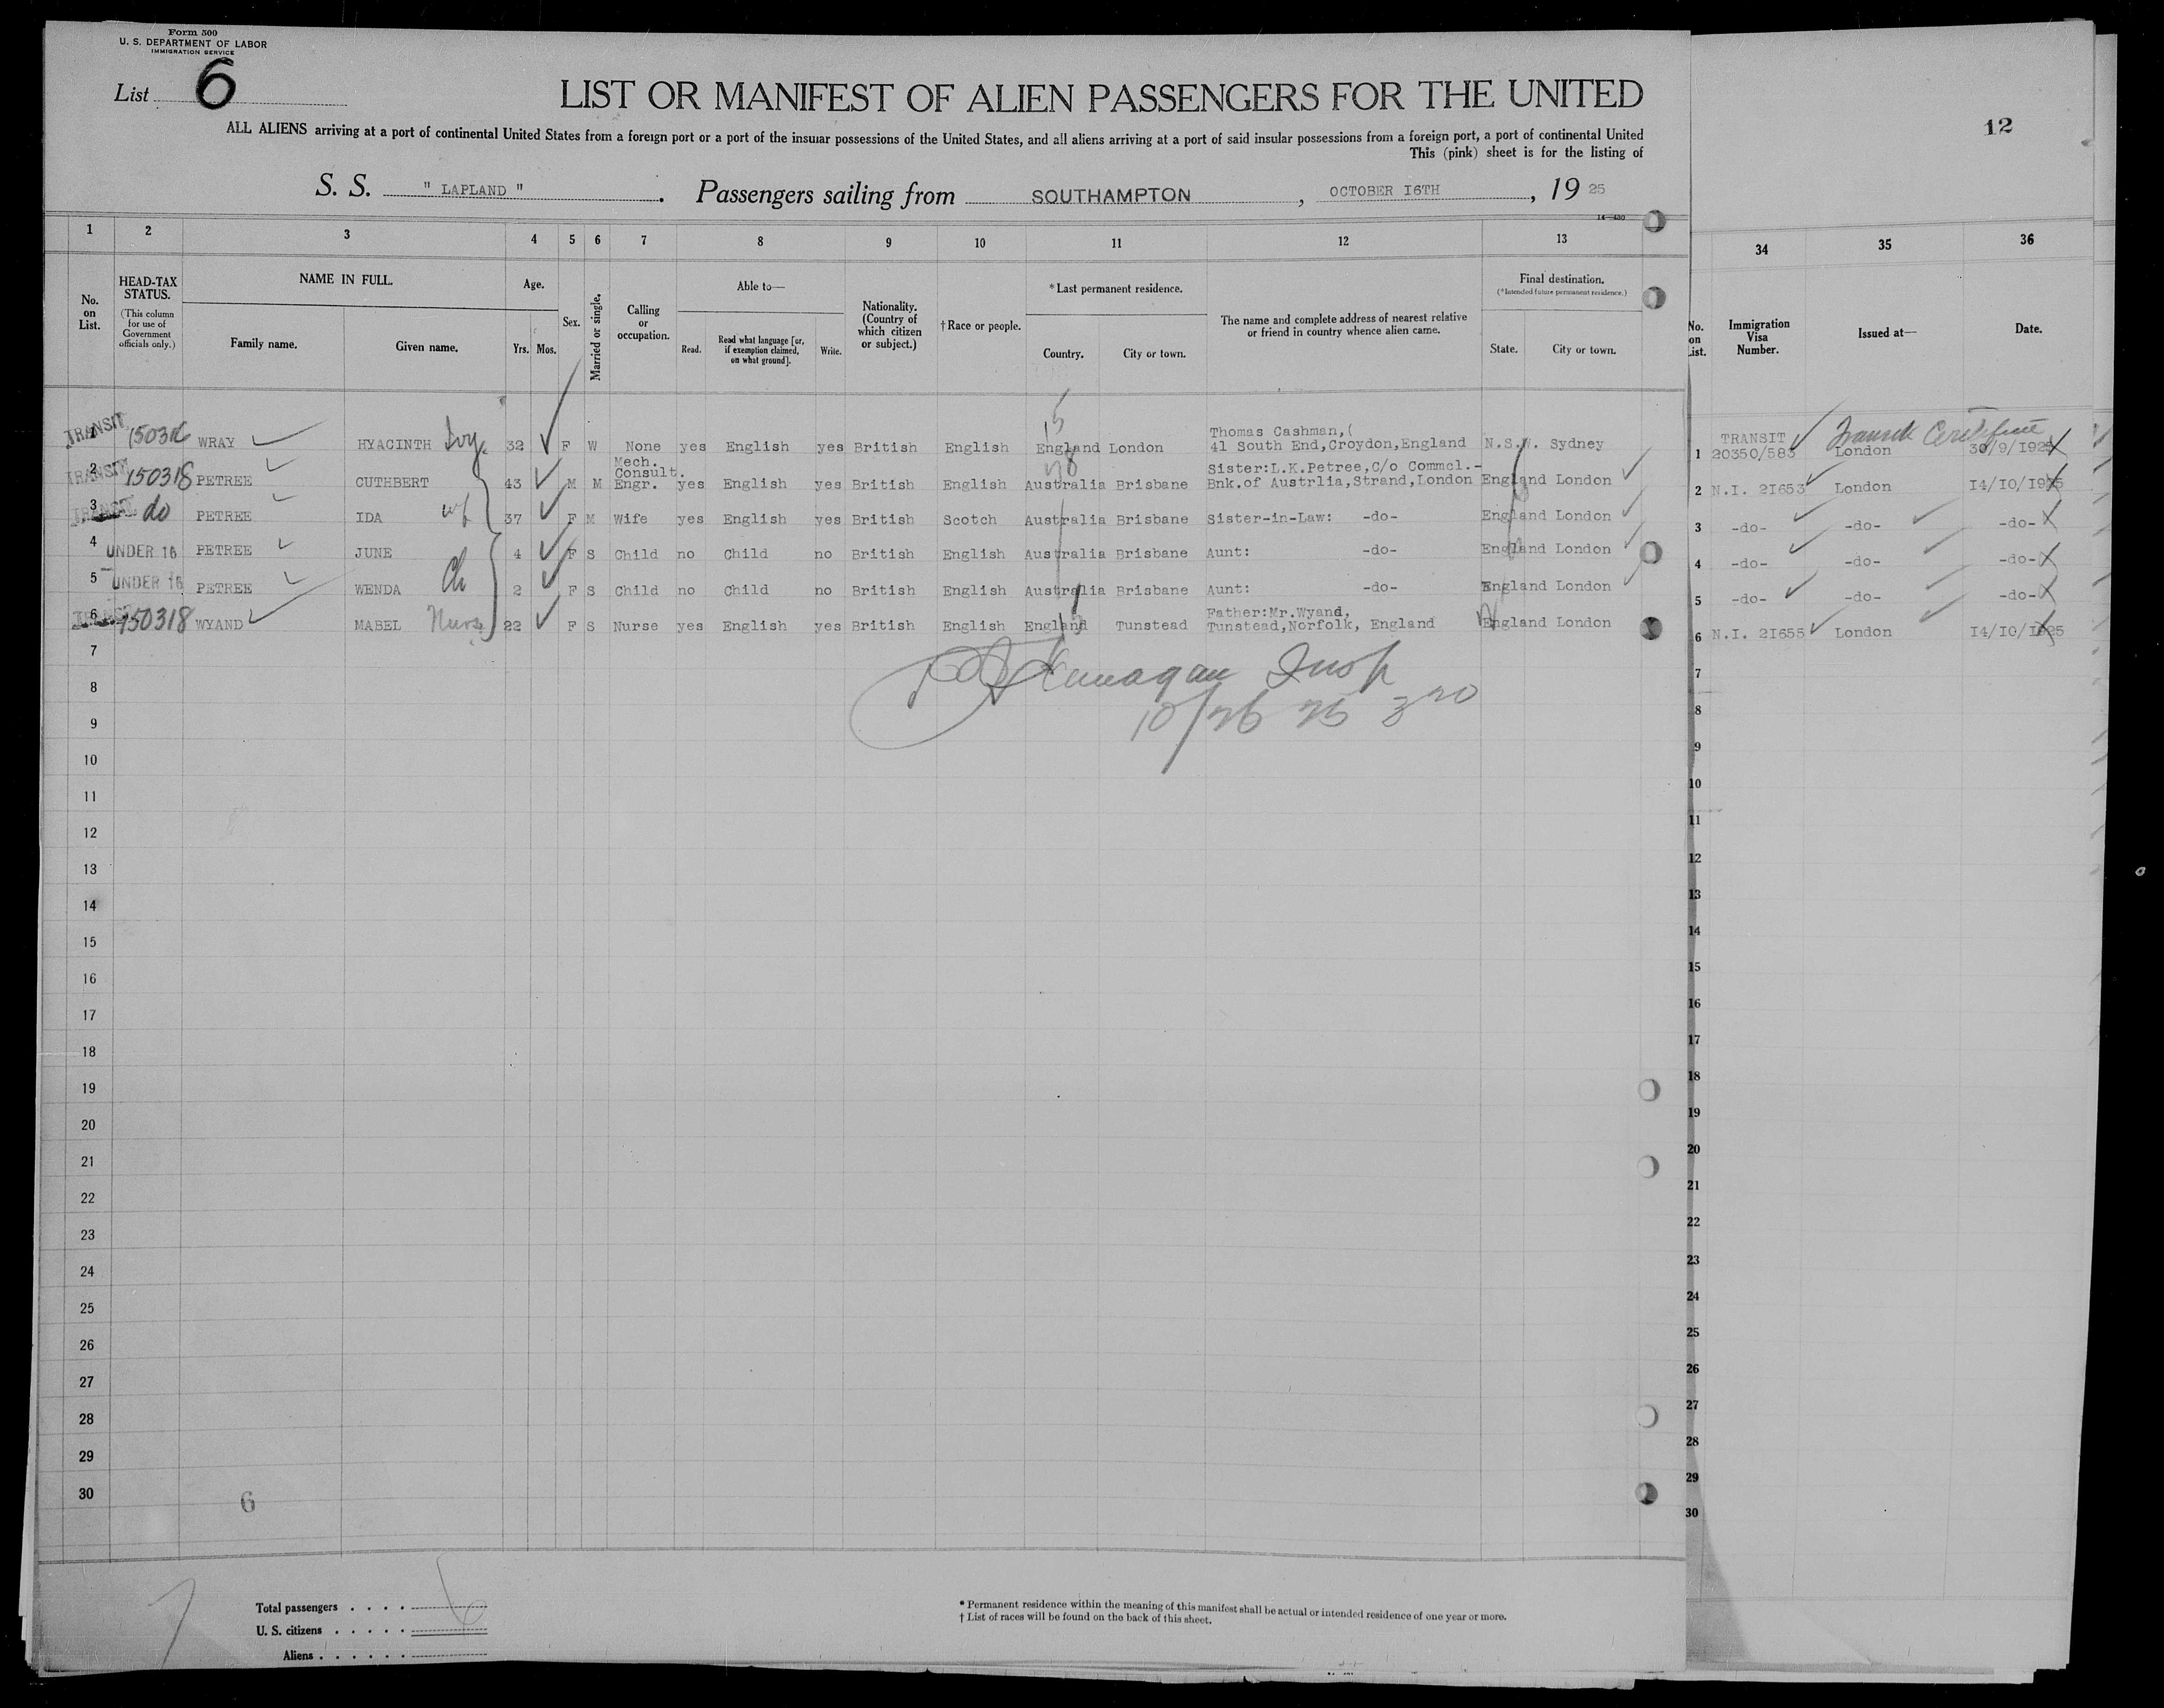 Form 500
U. S. DEPARTMENT OF LABOR
IMMIGRATION SERVICE
List 6
LIST OR MANIFEST OF ALIEN PASSENGERS FOR THE UNITED
ALL ALIENS arriving at a port of continental United States from a foreign port or a port of the insular possessions of the United States, and all aliens arriving at a port of said insular possessions from a foreign port, a port of continental United
This (pink) sheet is for the listing of
12
S. S. " LAPLAND ". Passengers sailing from SOUTHAMPTON, OCTOBER I6TH, 19 25
1 2 3 4 5 6 7 8 9 10 11 12 13 34 35 36
No. on List.
HEAD-TAX STATUS.
(This column for use of Government officials only.)
NAME IN FULL.
Family name. Given name.
Age.
Yrs. Mos.
Sex.
Married or single.
Calling or occupation.
Able to—
Read. Read what language [or, if exemption claimed, on what ground]. Write.
Nationality. (Country of which citizen or subject.)
†Race or people.
*Last permanent residence.
Country. City or town.
The name and complete address of nearest relative or friend in country whence alien came.
Final destination.
(*Intended future permanent residence.)
State. City or town.
No. on List.
Immigration Visa Number.
Issued at—
Date.
TRANSIT 150316 WRAY HYACINTH Ivy. 32 F W None yes English yes British English England London Thomas Cashman,( 41 South End,Croydon,England N.S.W. Sydney 1 TRANSIT 20350/583 Transit Certificate London 30/9/1925
2 TRANSIT 150318 PETREE CUTHBERT 43 M M Mech. Consult. Engr. yes English yes British English Australia Brisbane Sister:L.K.Petree,C/o Commcl.- Bnk.of Austrlia,Strand,London England London 2 N.I. 2I653 London I4/IO/I925
3 TRANSIT do PETREE IDA wf 37 F M Wife yes English yes British Scotch Australia Brisbane Sister-in-Law: -do- England London 3 -do- -do- -do-
4 UNDER 16 PETREE JUNE 4 F S Child no Child no British English Australia Brisbane Aunt: -do- England London 4 -do- -do- -do-
5 UNDER 16 PETREE WENDA Ch 2 F S Child no Child no British English Australia Brisbane Aunt: -do- England London 5 -do- -do- -do-
6 150318 WYAND MABEL Nurse 22 F S Nurse yes English yes British English England Tunstead Father:Mr.Wyand, Tunstead,Norfolk, England England London 6 N.I. 2I655 London I4/IO/I925
7 7
8 10/26 25 8
9 9
10 10
11 11
12 12
13 13
14 14
15 15
16 16
17 17
18 18
19 19
20 20
21 21
22 22
23 23
24 24
25 25
26 26
27 27
28 28
29 29
30 30
6
Total passengers . . . .
U. S. citizens . . . . .
Aliens . . . . . .
* Permanent residence within the meaning of this manifest shall be actual or intended residence of one year or more.
† List of races will be found on the back of this sheet.